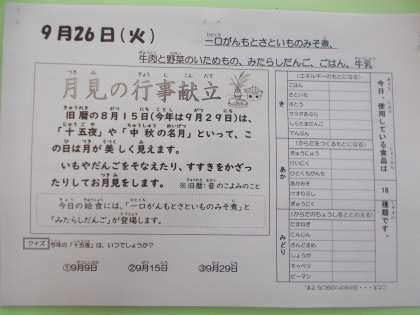 9月26日(火)
一口がんもとさといものみそ煮、
牛肉と野菜のいためもの、みたらしだんご、ごはん、牛乳
月見の行事献立
旧暦の8月15日(今年は9月29日)は、
「十五夜」や「中秋の名月」といって、こ
の日は月が美しく見えます。
いもやだんごをそなえたり、すすきをかざっ
たりしてお月見をします。 ※旧暦:昔のこよみのこと
今日の給食には、「一口がんもとさといものみそ煮」と
「みたらしだんご」が登場します。
クイズ 今年の「十五夜」は、いつでしょうか?
①9月9日 ②9月15日 ③9月29日
今日 使用している食品は 18 種類です。
き
(エネルギーのもとになる)
ごはん
さといも
さとう
サラダあぶら
しらたまだんご
でんぷん
あか
(からだをつくるもとになる)
ぎゅうにゅう
けいにく
ひとくちがんも
あかみそ
けずりぶし
ぎゅうにく
みどり
(からだのちょうしをととのえる)
たまねぎ
にんじん
さんどまめ
しょうが
キャベツ
ピーマン